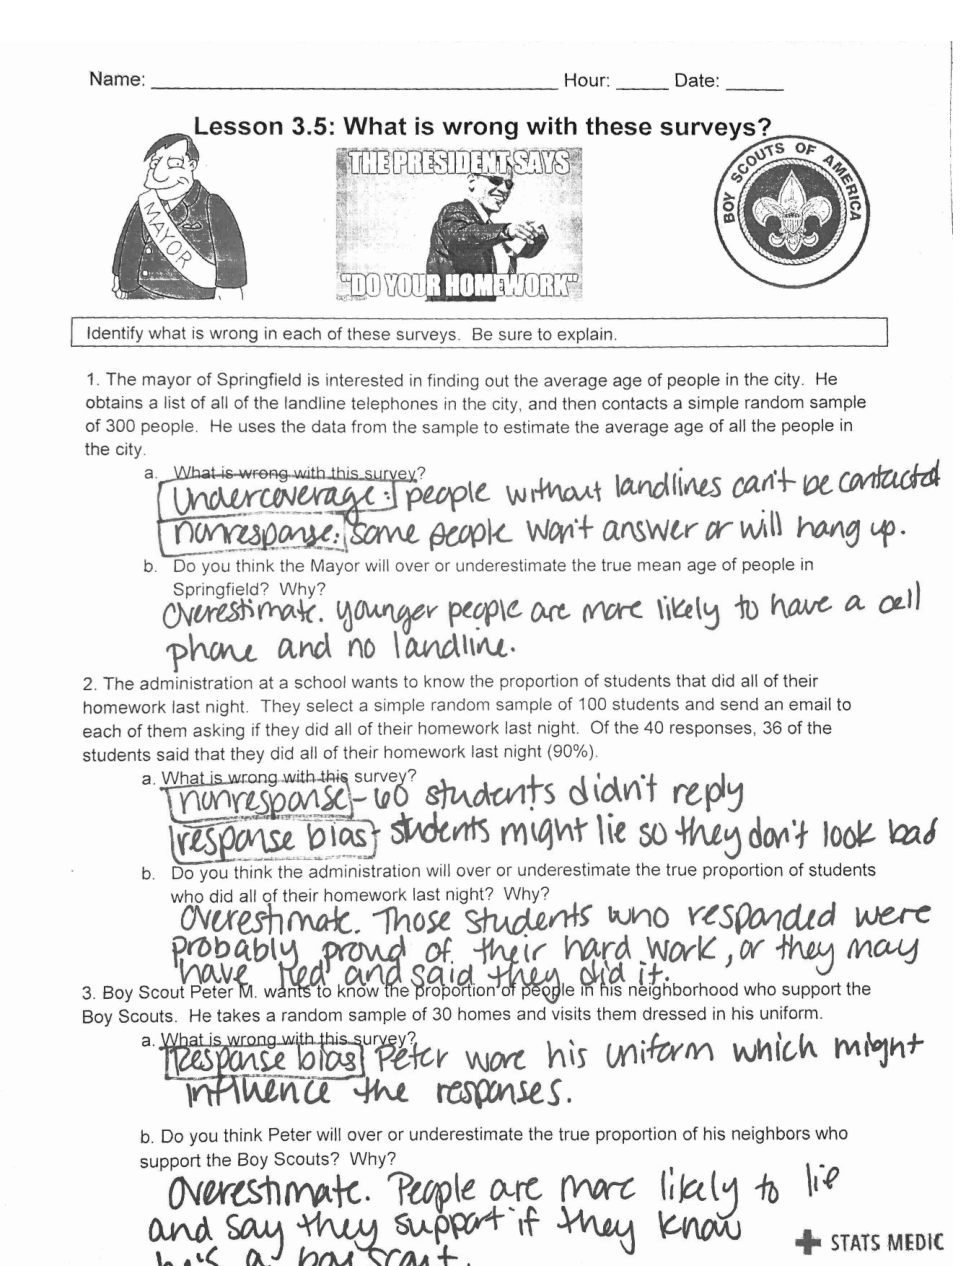 Name: Hour: Date:
Lesson 3.5: What is wrong with these surveys?
MAYOR
THE PRESIDENT SAYS
"DO YOUR HOMEWORK"
BOY SCOUTS OF AMERICA
Identify what is wrong in each of these surveys. Be sure to explain.
1. The mayor of Springfield is interested in finding out the average age of people in the city. He
obtains a list of all of the landline telephones in the city, and then contacts a simple random sample
of 300 people. He uses the data from the sample to estimate the average age of all the people in
the city.
a. What is wrong with this survey?
Undercoverage: people without landlines can't be contacted
nonresponse: Some people won't answer or will hang up.
b. Do you think the Mayor will over or underestimate the true mean age of people in
Springfield? Why?
Overestimate. Younger people are more likely to have a cell
phone and no landline.
2. The administration at a school wants to know the proportion of students that did all of their
homework last night. They select a simple random sample of 100 students and send an email to
each of them asking if they did all of their homework last night. Of the 40 responses, 36 of the
students said that they did all of their homework last night (90%).
a. What is wrong with this survey?
nonresponse - 60 students didn't reply
response bias - students might lie so they don't look bad
b. Do you think the administration will over or underestimate the true proportion of students
who did all of their homework last night? Why?
Overestimate. Those students who responded were
probably proud of their hard work, or they may
have lied and said they did it.
3. Boy Scout Peter M. wants to know the proportion of people in his neighborhood who support the
Boy Scouts. He takes a random sample of 30 homes and visits them dressed in his uniform.
a. What is wrong with this survey?
Response bias Peter wore his uniform which might
influence the responses.
b. Do you think Peter will over or underestimate the true proportion of his neighbors who
support the Boy Scouts? Why?
Overestimate. People are more likely to lie
and say they support if they know
he's a boy scout.
STATS MEDIC